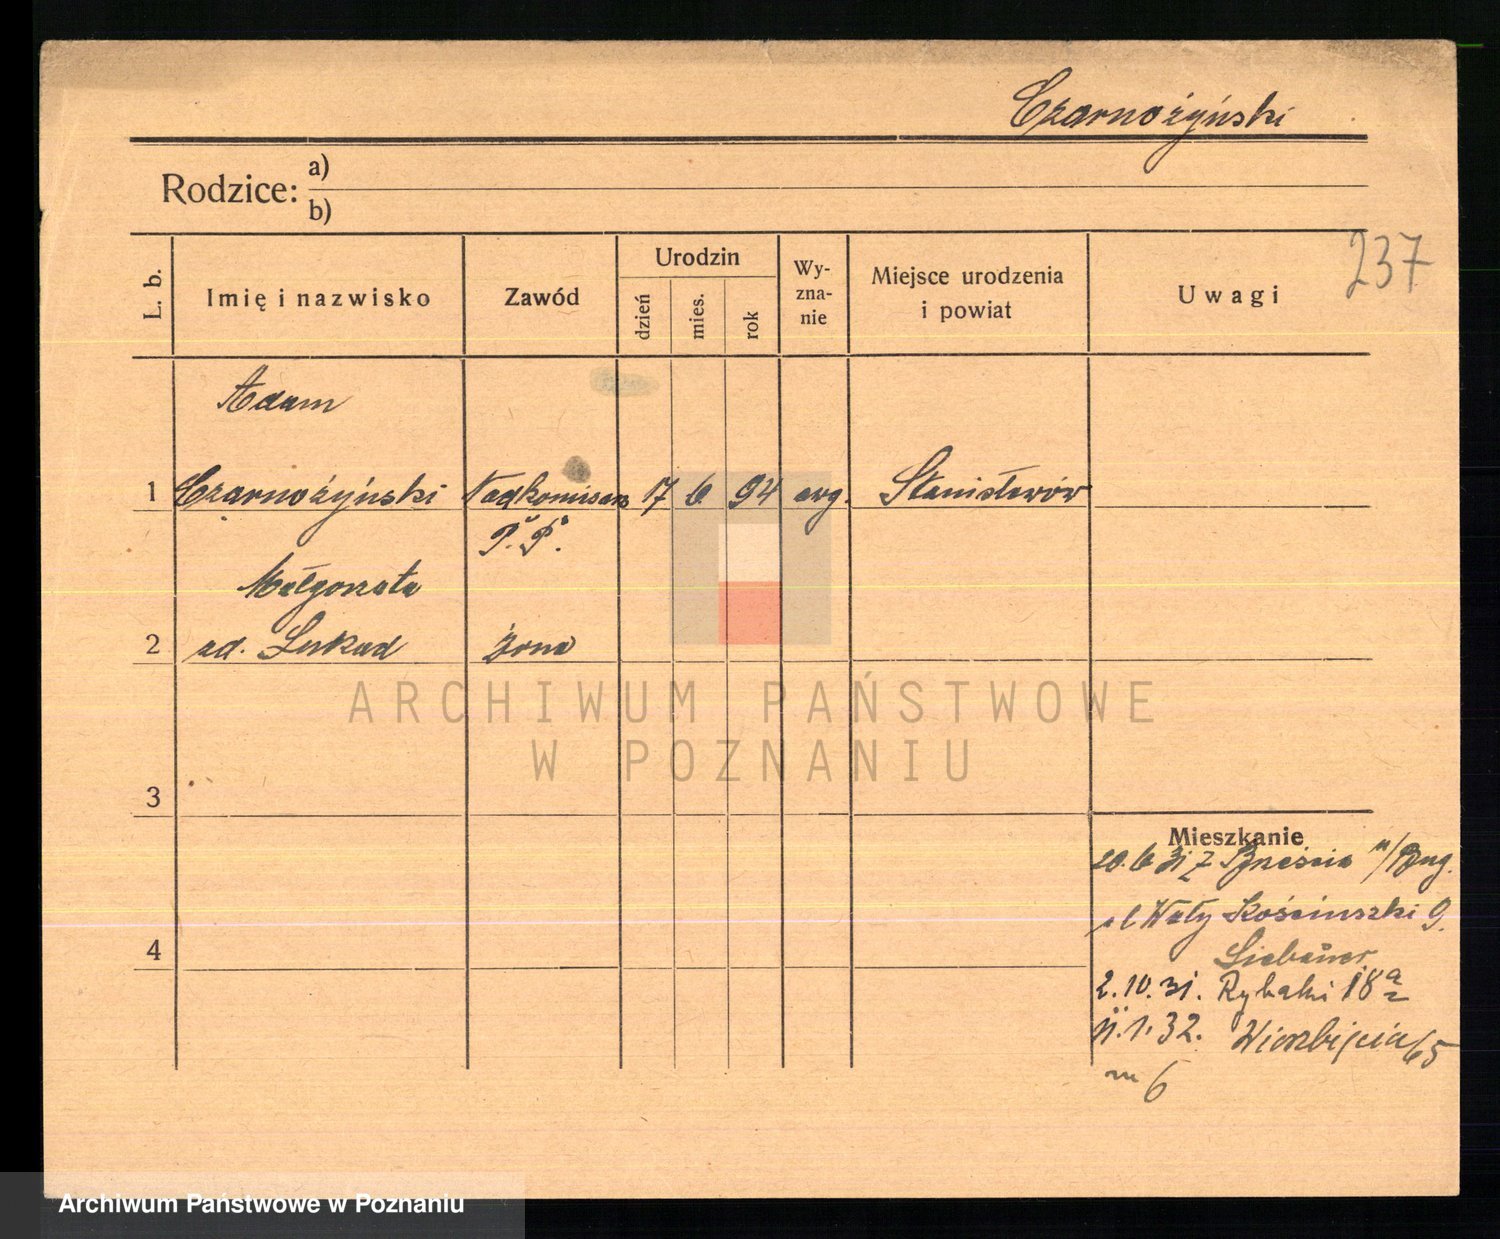 Czarnożyński
Rodzice: a)
b)
237
L. b.
Imię i nazwisko
Zawód
Urodzin
dzień
mies.
rok
Wy-
zna-
nie
Miejsce urodzenia
i powiat
Uwagi
Adam
1 Czarnożyński Nadkomisarz 17 6 94 Stanisławów
P. P.
Małgorzata
2 zd. Lukad żona
ARCHIWUM PAŃSTWOWE
W POZNANIU
3
Mieszkanie
20.6.31 z Brześcia n/Bug.
Wały Kościuszki 9.
4
2.10.31. Rybaki 18a
11.1.32. Wierzbięcia 65
m 6
Archiwum Państwowe w Poznaniu